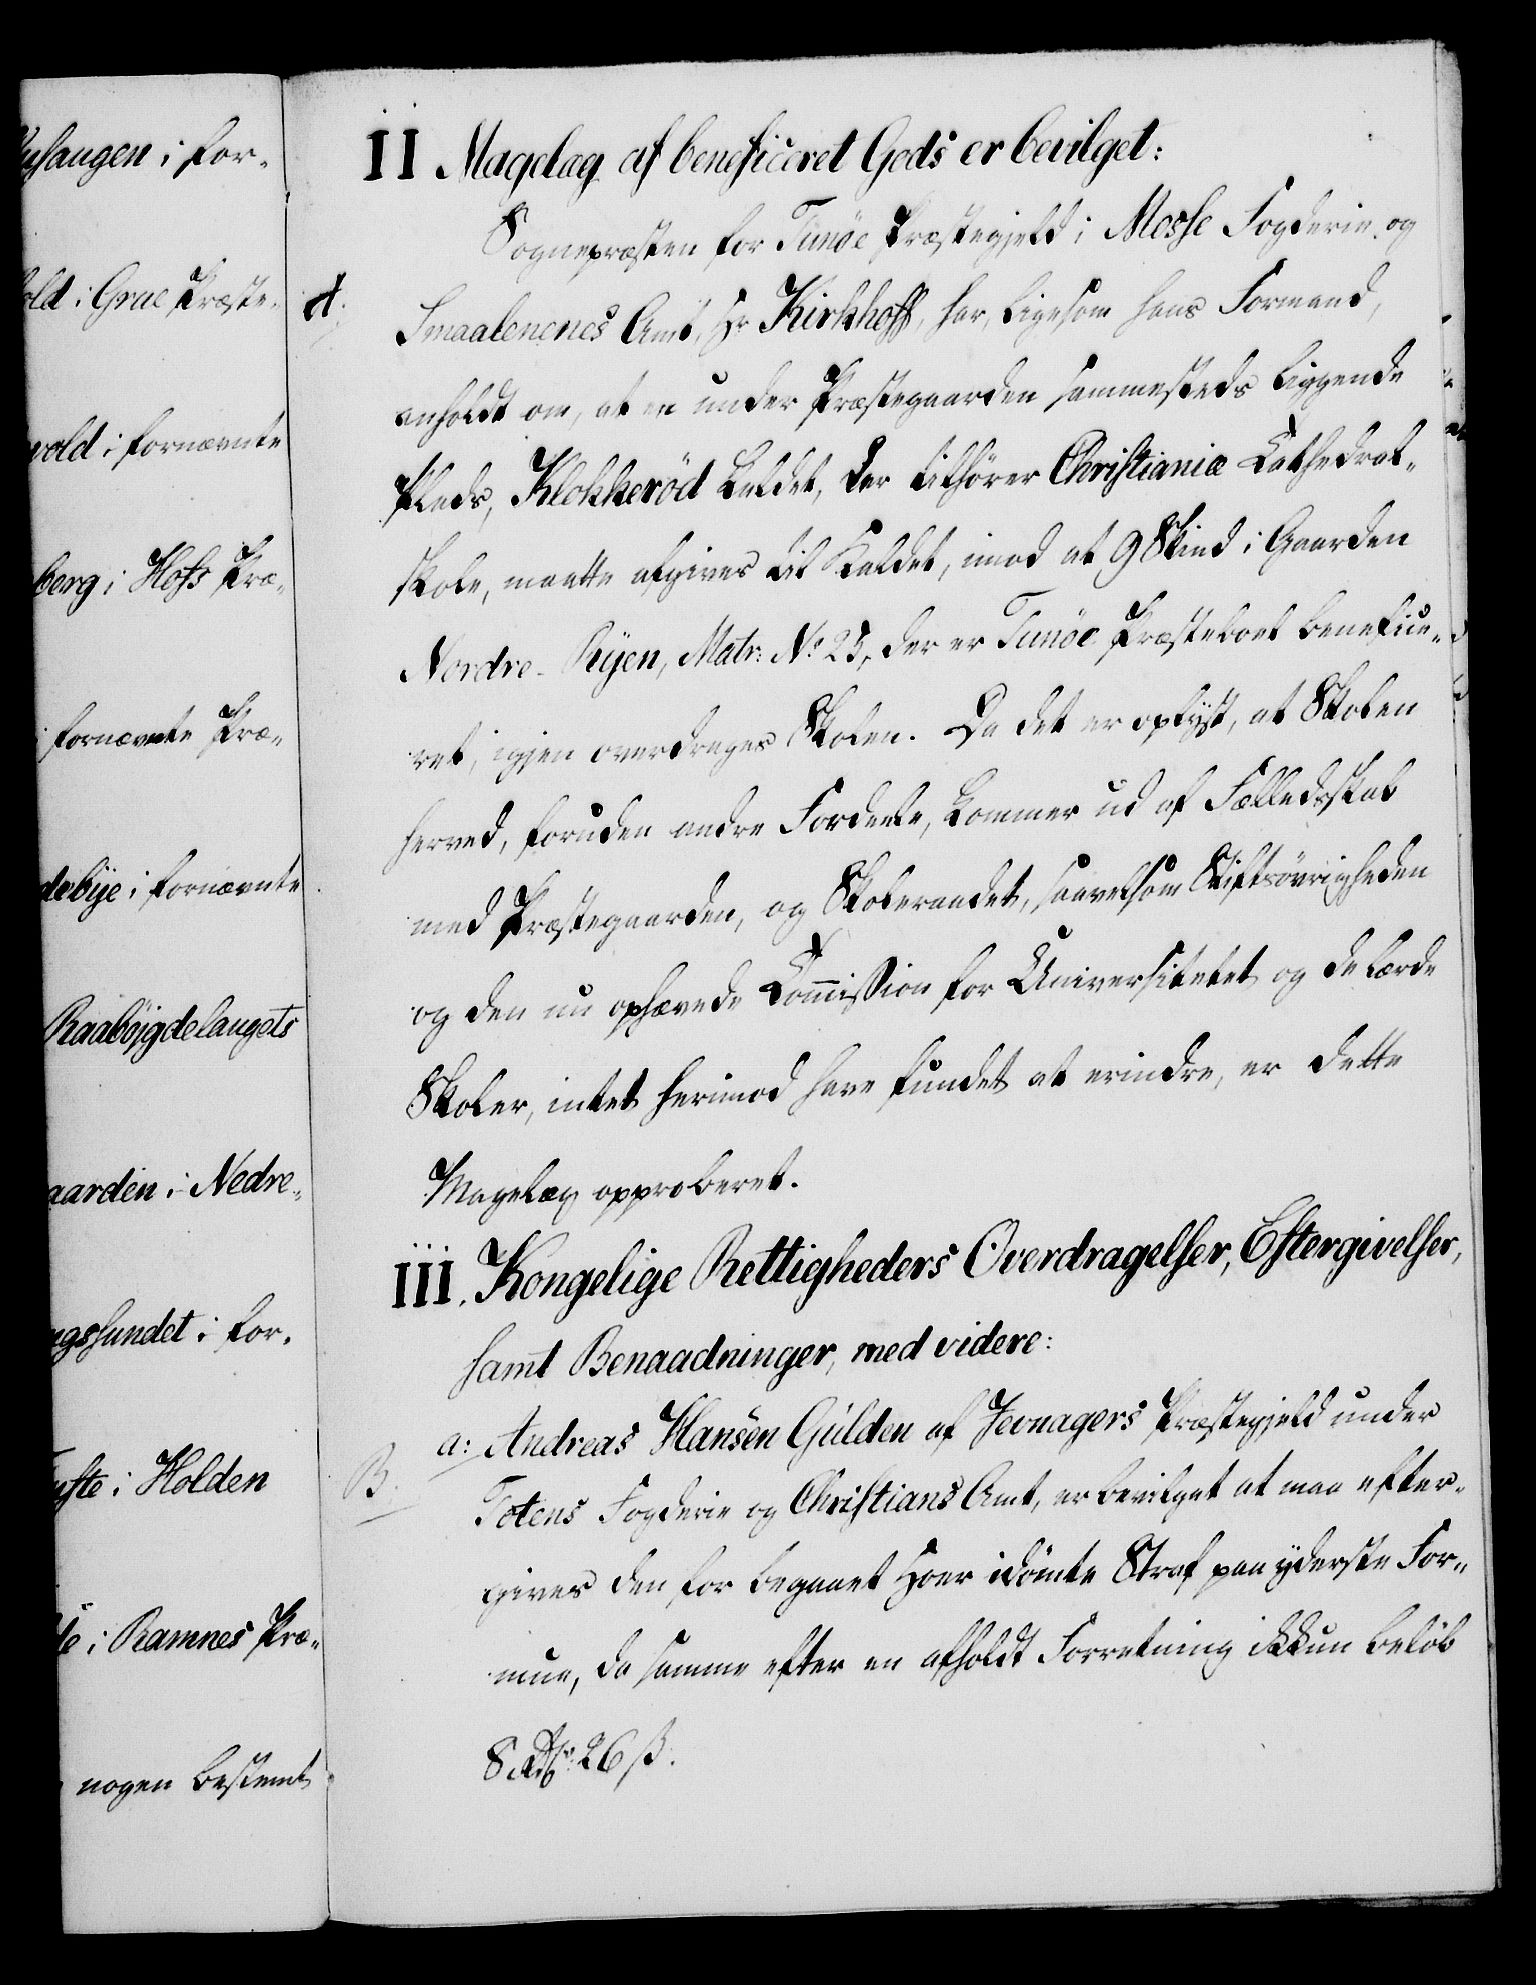 usaugen i for-
old i Grue Præste-
vold i fornævnte
berg i Hofs Præ-
i fornævnte Præ-
debije i fornævnte
Raabøigdelaugets
aarden i Nedre-
ngssundet i for-
i Holden
i Ramnes Præ-
nogen bestemt
II Magelæg af beneficeret Gods er bevilget:
Sognepræsten for Tunøe Præstegjeld i Mosse Fogderie og
A.
Smaalenenes Amt, Hr Kirkhoff, har, ligesom hans Formand,
anholdt om, at en under Præstegaarden sammesteds liggende
Plads, Klokkerød kaldet, der tilhører Christianiæ Cathedral-
skole, maatte afgives til Kaldet, imod at 9 Skind i Gaarden
Nordre-Ryen, Matr: No 25, der er Tunøe Præstebord benefice-
ret, igjen overdrages Skolen. Da det er oplyst, at Skolen
herved, foruden andre Fordeele, kommer ud af Fælledsskab
med Præstegaarden, og Skoleraadet, saavelsom Stiftsøvrigheden
og den nu ophævede Commission for Universitetet og de lærde
Skoler, intet herimod have fundet at erindre, er dette
Magelæg approberet.
III. Kongelige Rettigheders Overdragelser, Eftergivelser,
samt Benaadninger, med videre:
a: Andreas Hansen Gulden af Jevnagers Præstegjeld under
B.
Totens Fogderie og Christians Amt, er bevilget at maa efter-
gives den for begaaet Hoer idømte Straf paa yderste For-
mue, da samme efter en afholdt Forretning ikkun beløb
8 Rbd. 26 ß.